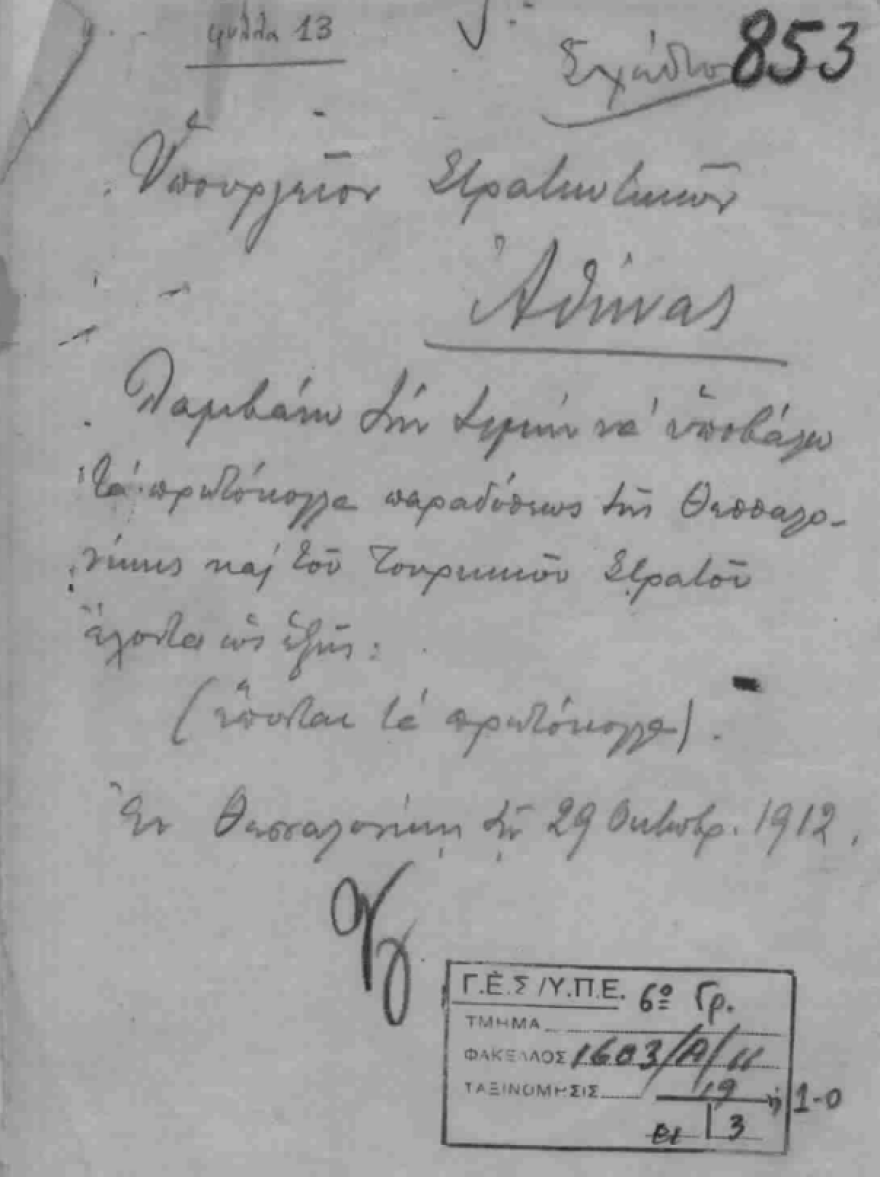 φύλλα 13
Σχέδιον 853
Ὑπουργεῖον Στρατιωτικῶν
Ἀθήνας
Λαμβάνω τὴν τιμὴν νὰ ὑποβάλω
τὰ πρωτόκολλα παραδόσεως τῆς Θεσσαλο-
νίκης καὶ τοῦ Τουρκικοῦ Στρατοῦ
ἔχοντα ὡς ἑξῆς:
(ἕπονται τὰ πρωτόκολλα).
Ἐν Θεσσαλονίκῃ τῇ 29 Ὀκτωβρ. 1912.
Γ.Ε.Σ/Υ.Π.Ε. 6º Γρ.
ΤΜΗΜΑ
ΦΑΚΕΛΛΟΣ 1603/Α/11
ΤΑΞΙΝΟΜΗΣΙΣ 19 1-0
3